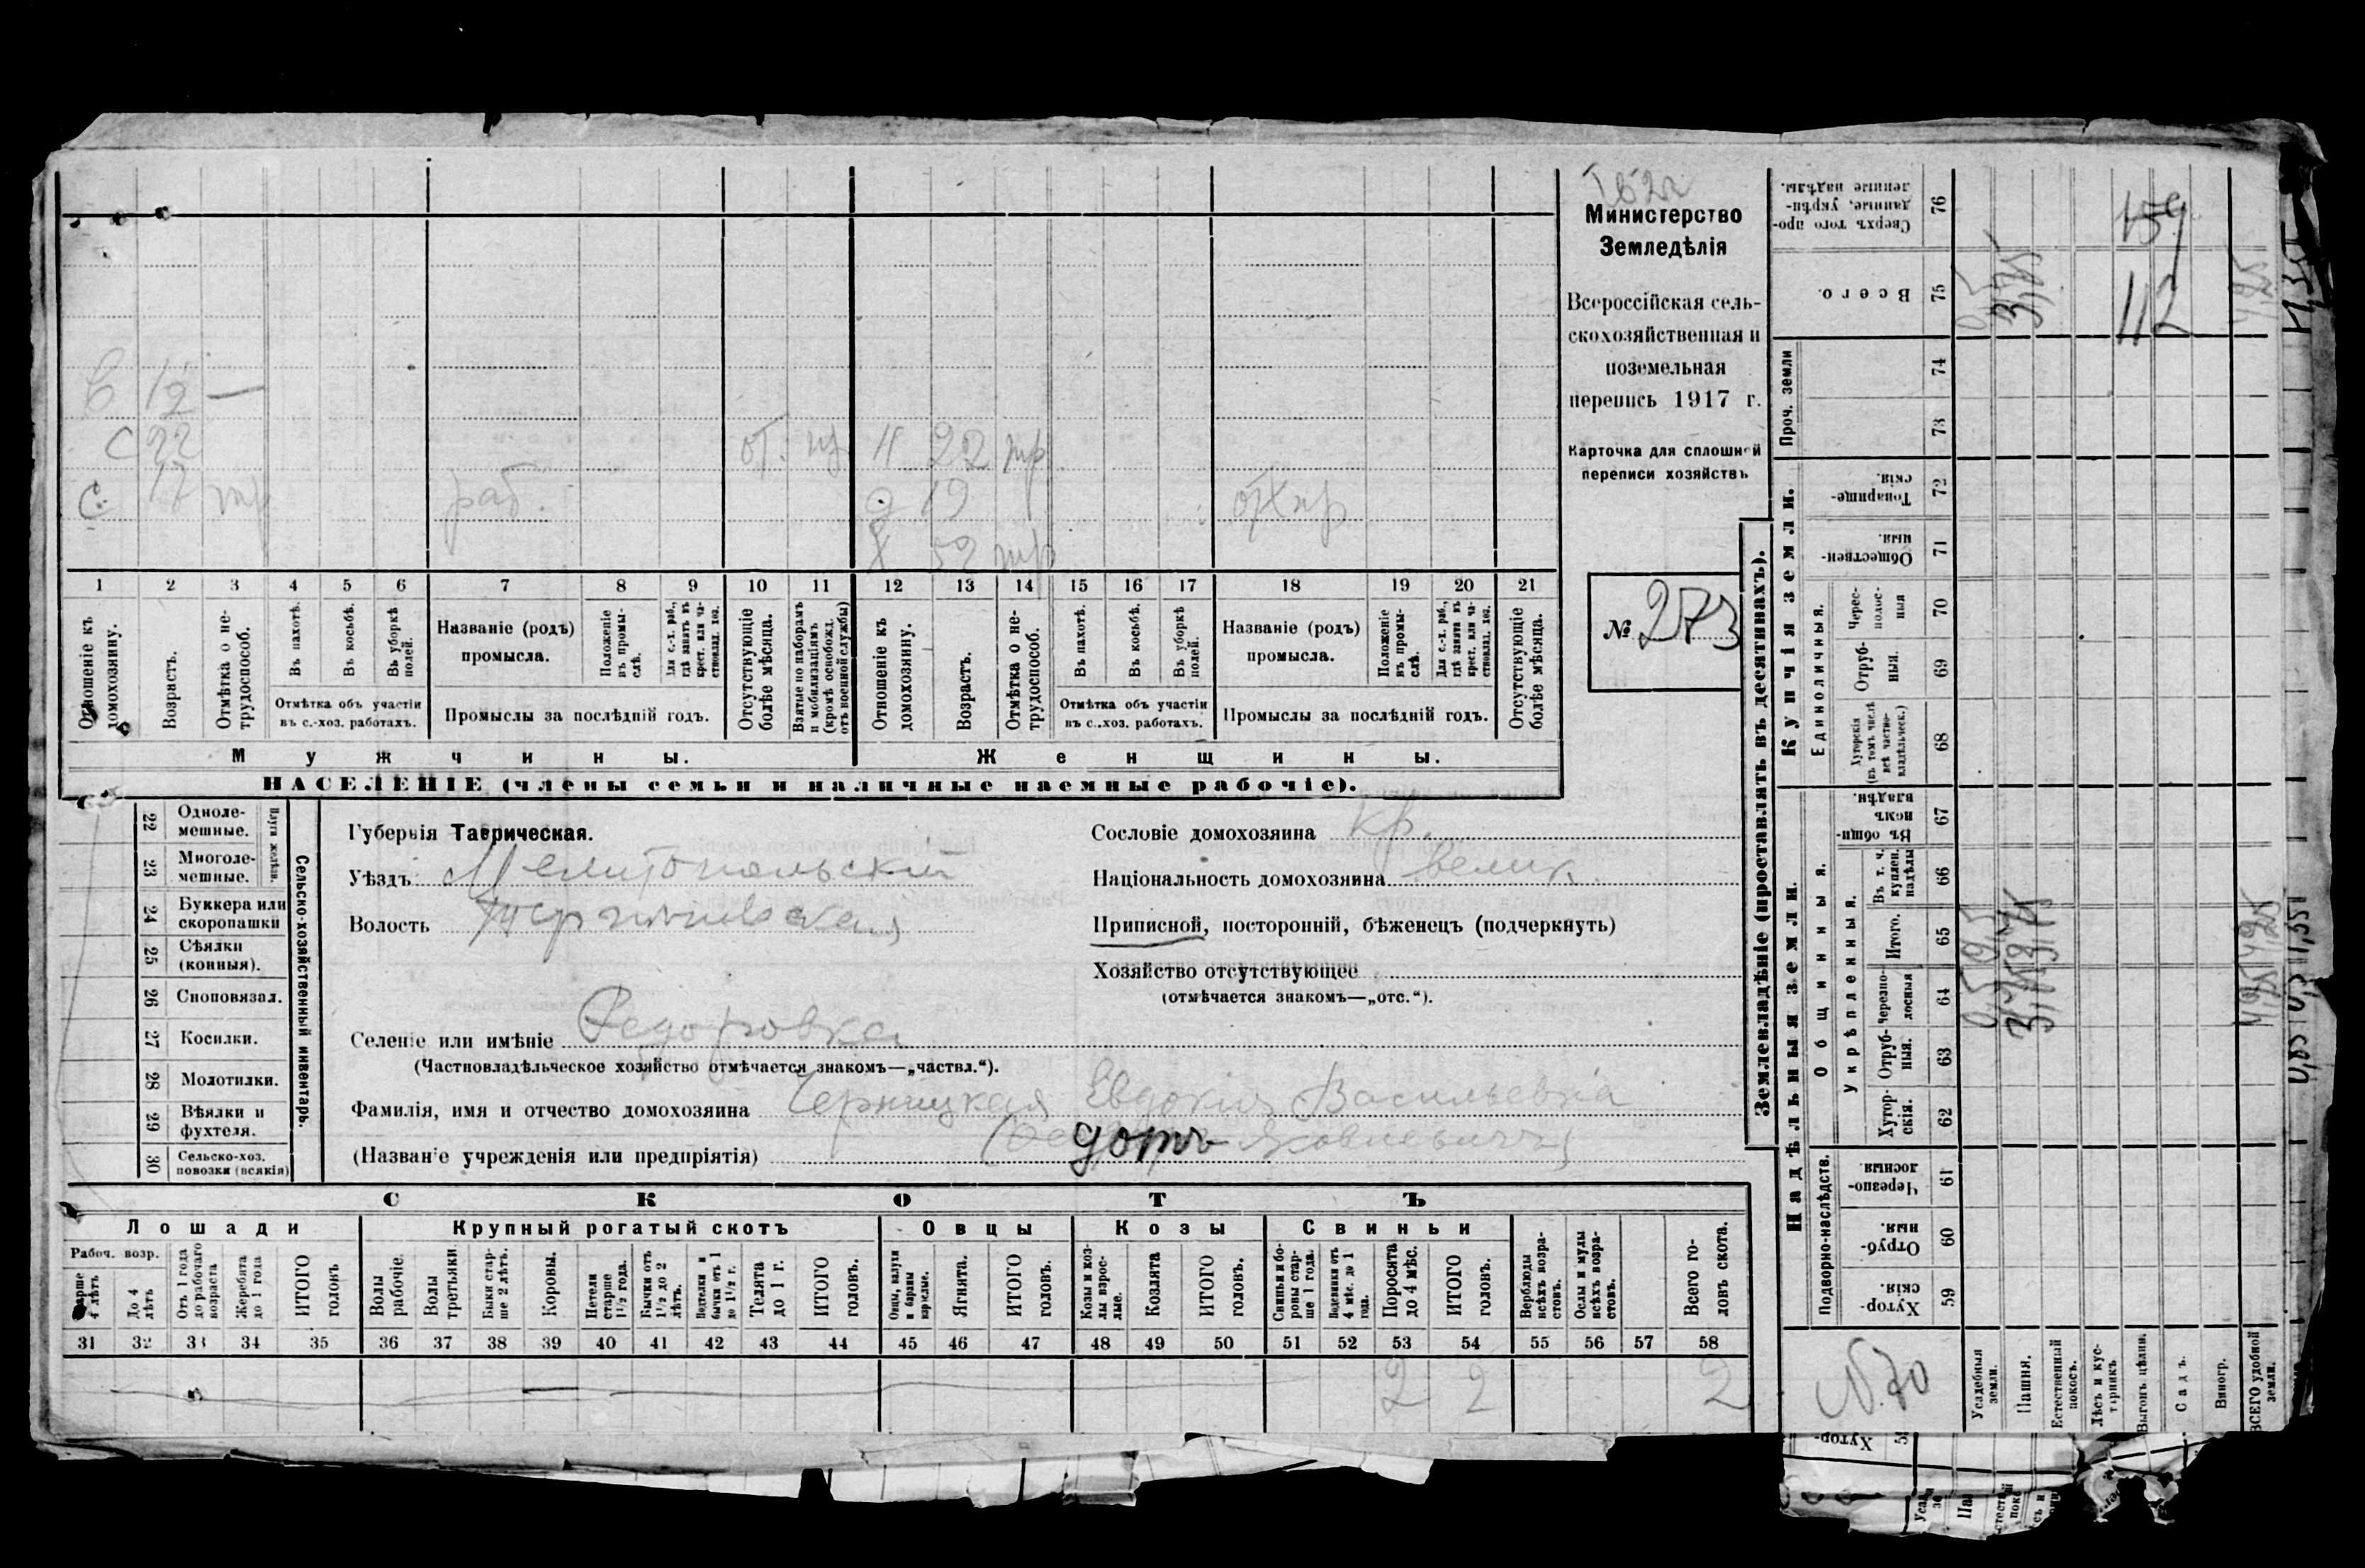 Министерство
Земледѣлія
Всероссійская сель-
скохозяйственная и
поземельная
перепись 1917 г.
Карточка для сплошной
переписи хозяйствъ
№ 273
С 12 —
С 22 от. Н 22 нр
С 17 нр раб. д 19
Х 52 нр
1 2 3 4 5 6 7 8 9 10 11 12 13 14 15 16 17 18 19 20 21
Отношеніе къ домохозяину.
Возрастъ.
Отмѣтка о не-трудоспособ.
Въ пахотѣ.
Въ косьбѣ.
Въ уборкѣ полей.
Отмѣтка объ участіи въ с.-хоз. работахъ.
Названіе (родъ) промысла.
Положеніе въ промы-слѣ.
Для с.-х. раб., гдѣ занятъ въ крест. или ча-стновлад. хоз.
Промыслы за послѣдній годъ.
Отсутствующіе болѣе мѣсяца.
Взятые по наборамъ и мобилизаціямъ (кромѣ освобожд. отъ военной службы)
Отношеніе къ домохозяину.
Возрастъ.
Отмѣтка о не-трудоспособ.
Въ пахотѣ.
Въ косьбѣ.
Въ уборкѣ полей.
Отмѣтка объ участіи въ с.-хоз. работахъ.
Названіе (родъ) промысла.
Положеніе въ промы-слѣ.
Для с.-х. раб., гдѣ занята въ крест. или ча-стновлад. хоз.
Промыслы за послѣдній годъ.
Отсутствующіе болѣе мѣсяца.
Мужчины. Женщины.
НАСЕЛЕНІЕ (члены семьи и наличные наемные рабочіе).
22 Одноле-мешные.
23 Многоле-мешные.
Плуги желѣзн.
24 Буккера или скоропашки
25 Сѣялки (конныя).
26 Сноповязал.
27 Косилки.
28 Молотилки.
29 Вѣялки и фухтеля.
30 Сельско-хоз. повозки (всякія)
Сельско-хозяйственный инвентарь.
Губернія Таврическая.
Уѣздъ Мелитопольскій
Волость
Селеніе или имѣніе Федоровка
(Частновладѣльческое хозяйство отмѣчается знакомъ—„частвл.“).
Фамилія, имя и отчество домохозяина Черницкая Евдокія Васильевна
(Названіе учрежденія или предпріятія) Яковлевичъ)
Сословіе домохозяина кр.
Національность домохозяина велик.
Приписной, посторонній, бѣженецъ (подчеркнуть)
Хозяйство отсутствующее
(отмѣчается знакомъ—„отс.“).
СКОТЪ
Лошади Крупный рогатый скотъ Овцы Козы Свиньи
Рабоч. возр.
Старше 4 лѣтъ
До 4 лѣтъ
Отъ 1 года до рабочаго возраста
Жеребята до 1 года
ИТОГО головъ
Волы рабочіе.
Волы третьяки.
Быки стар-ше 2 лѣтъ.
Коровы.
Нетели старше 1½ года.
Бычки отъ 1½ до 2 лѣтъ.
Подтелки и бычки отъ 1 до 1½ г.
Телята до 1 г.
ИТОГО головъ.
Овцы, валухи и бараны взрослые.
Ягнята.
ИТОГО головъ.
Козы и коз-лы взрос-лые.
Козлята
ИТОГО головъ.
Свиньи и бо-ровы стар-ше 1 года.
Подсвинки отъ 4 мѣс. до 1 года.
Поросята до 4 мѣс.
ИТОГО головъ.
Верблюды всѣхъ возра-стовъ.
Ослы и мулы всѣхъ возра-стовъ.
Всего го-ловъ скота.
31 32 33 34 35 36 37 38 39 40 41 42 43 44 45 46 47 48 49 50 51 52 53 54 55 56 57 58
2 2 2
Землевладѣніе (проставлять въ десятинахъ).
Надѣльныя земли. Купчія земли. Проч. земли
Подворно-наслѣдств.
Общинныя.
Укрѣпленныя.
Единоличныя.
Хутор-скія. 59
Отруб-ныя. 60
Черезпо-лосныя. 61
Хутор-скія. 62
Отруб-ныя. 63
Черезпо-лосныя 64
Итого. 65
Въ т. ч. куплен. надѣлы 66
Въ общин-номъ владѣн. 67
Хуторскія (въ томъ числѣ всѣ частно-владѣльческ.) 68
Отруб-ныя. 69
Черес-полос-ныя 70
Обществен-ныя. 71
Товарище-скія. 72
73 74
Всего. 75
Сверхъ того про-данные, укрѣп-ленные надѣлы. 76
N. 70
Усадебныя земли. 0,5 0,5 0,5
Пашня. 3,75 3,75 3,75
Естественный покосъ.
Лѣсъ и кус-тарникъ
Выгонъ цѣлин. 112 159
Садъ.
Виногр.
ВСЕГО удобной земли. 4,25 4,25 4,25